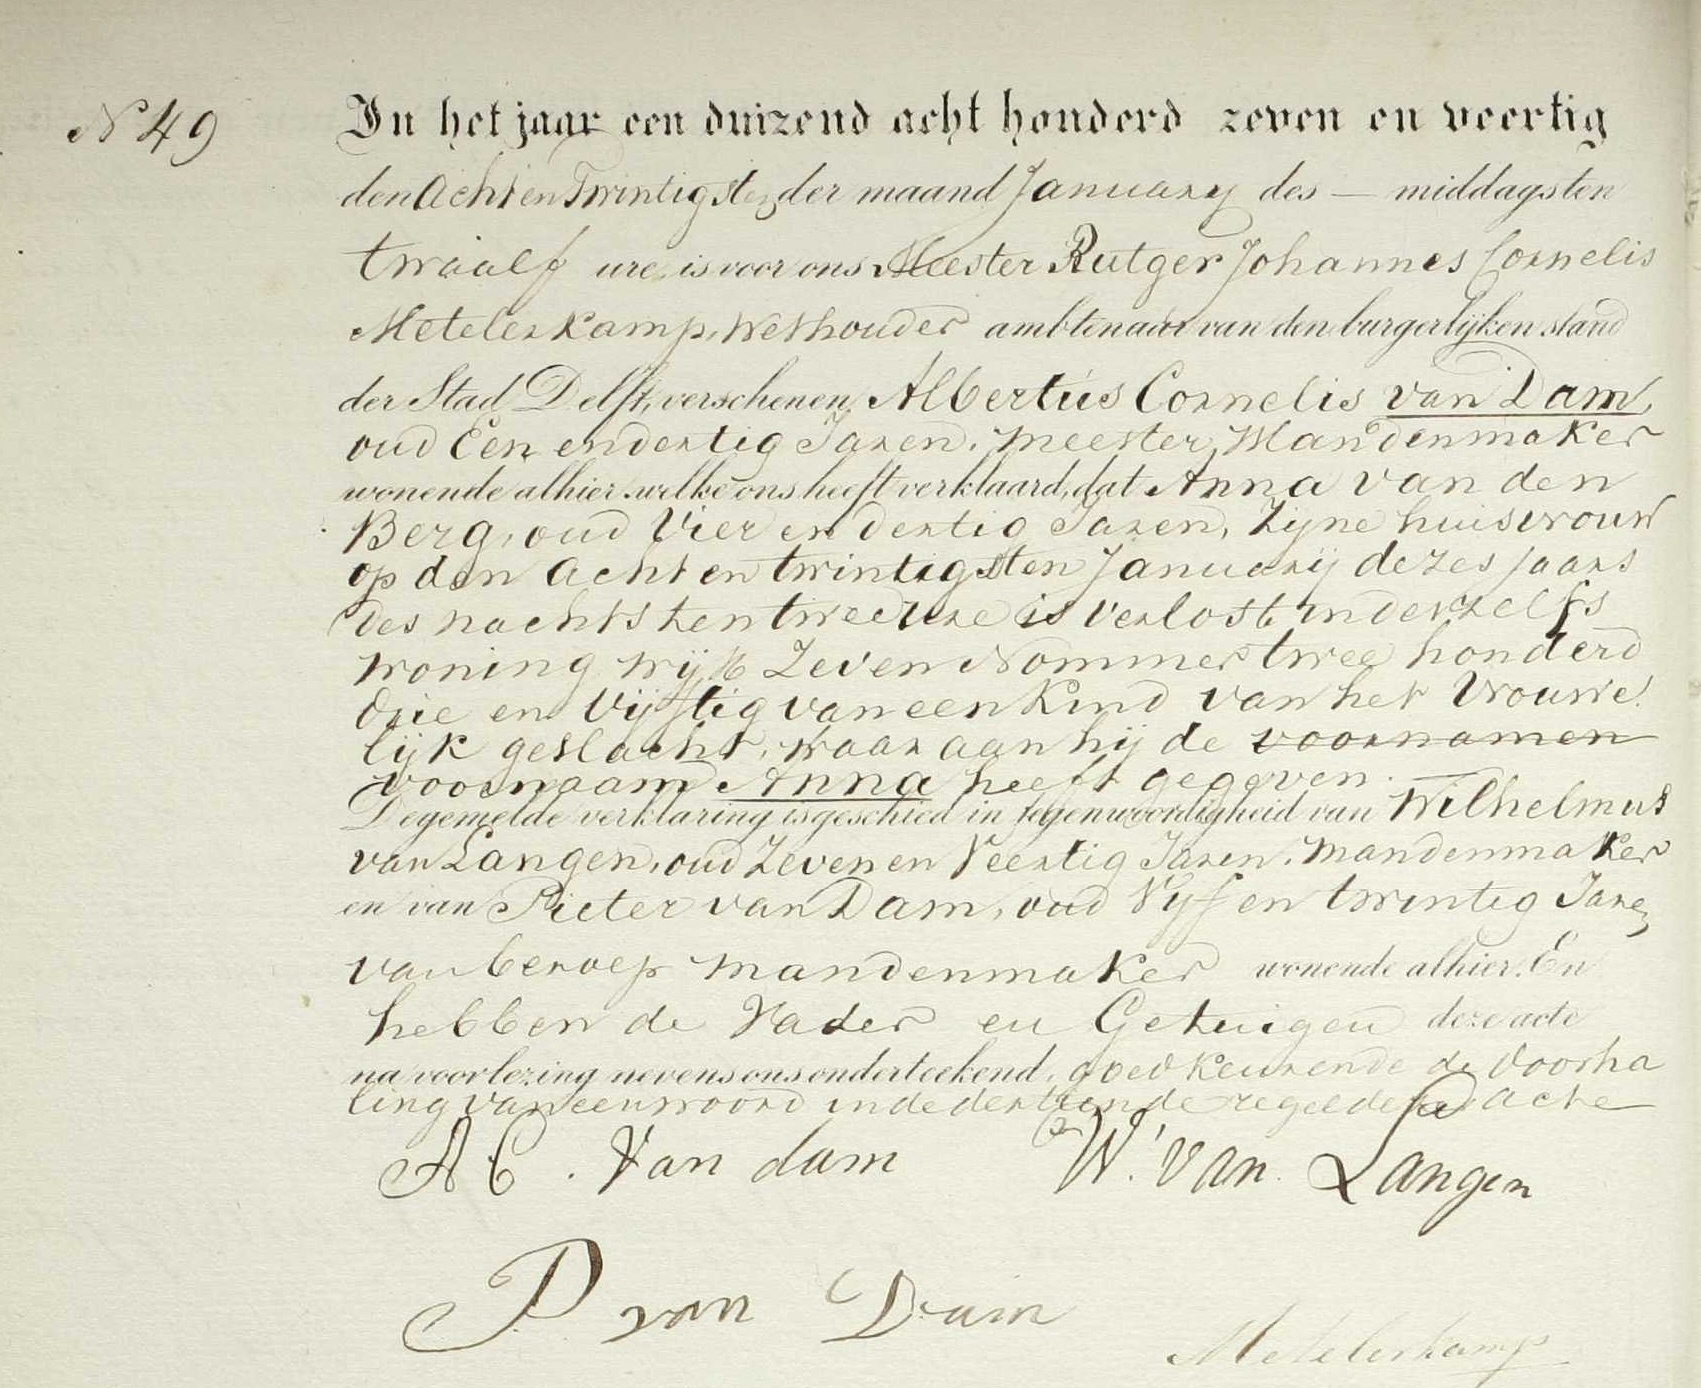 N 49
In het jaar een duizend acht honderd zeven en veertig
den Acht en Twintigsten der maand January des — middags ten
twaalf ure, is voor ons Meester Rutger Johannes Cornelis
Metelerkamp, Wethouder ambtenaar van den burgerlijken stand
der Stad Delft, verschenen, Albertus Cornelis van Dam,
oud Een en dertig Jaren, meester, Mandenmaker
wonende alhier welke ons heeft verklaard, dat Anna van den
Berg, oud Vier en dertig Jaren, Zijne huisvrouw
op den acht en twintigsten Januarij dezes jaars
des nachts ten twee ure is verlost in derzelfs
woning wijk Zeven Nommer twee honderd
drie en Vijftig van een Kind van het Vrouwe
lijk geslacht, waar aan hij de voornamen
voornaam Anna heeft gegeven.
De gemelde verklaring is geschied in tegenwoordigheid van Wilhelmus
van Langen, oud Zeven en Veertig Jaren, Mandenmaker
en van Pieter van Dam, oud Vijf en twintig Jaren
van beroep mandenmaker wonende alhier. En
hebben de Vader en Getuigen deze acte
na voorlezing nevens ons onderteekend, goedkeurende de doorha
ling van een woord in de dertiende regel dezer acte
A C . Van dam W. van Langen
P van Dam
Metelerkamp